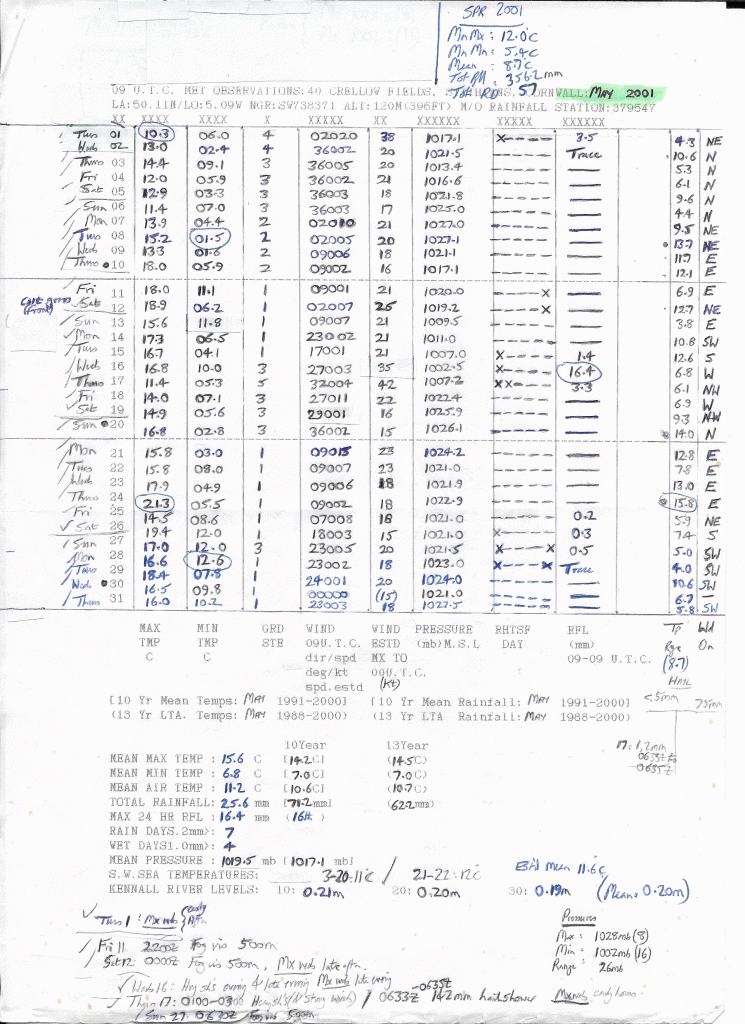 SPR 2001
Mn Mx : 12.0°C
Mn Mn : 5.4c
Mean : 8.7c
Tot Rfl : 356.2mm
Tot RD 57
09 U.T.C. MET OBSERVATIONS:40 CRELLOW FIELDS, CORNWALL: MAY 2001
LA:50.11N/LO:5.09W NGR:SW738371 ALT:120M(396FT) M/O RAINFALL STATION:379547
XX XXXX XXXX X XXXXX XX XXXXXX XXXXX XXXXXX
Tues 01 10.3 06.0 4 02020 38 1017.1 x---- 3.5 4.3 NE
Weds 02 13.0 02.4 4 36002 20 1021.5 ----- Trace 10.6 N
Thurs 03 14.4 09.1 3 36005 20 1013.4 ----- — 5.3 N
Fri 04 12.0 05.9 3 36002 21 1016.6 ----- — 6.1 N
Sat 05 12.9 03.3 3 36003 18 1021.8 ----- — 9.6 N
Sun 06 11.4 07.0 3 36003 17 1025.0 ----- — 4.4 N
Mon 07 13.9 04.4 2 02010 21 1027.0 ----- — 9.5 NE
Tues 08 15.2 01.5 2 02005 20 1027.1 ----- — 13.7 NE
Weds 09 13.3 01.6 2 09006 18 1021.1 ----- — 11.7 E
Thurs 10 18.0 05.9 2 09002 16 1017.1 ----- — 12.1 E
Fri 11 18.0 11.1 1 09001 21 1020.0 ----x — 6.9 E
Sat 12 18.9 06.2 1 02007 26 1019.2 ----x — 12.7 NE
(Front)
Sun 13 15.6 11.8 1 09007 21 1009.5 ----- — 3.8 E
Mon 14 17.3 06.5 1 23002 21 1011.0 ----- — 10.8 SW
Tues 15 16.7 04.1 1 17001 21 1007.0 x---- 1.4 12.6 S
Weds 16 16.8 10.0 3 27003 35 1002.5 x---- 16.4 6.8 W
Thurs 17 11.4 05.3 5 32004 42 1007.2 xx--- 3.3 6.1 NW
Fri 18 14.0 07.1 3 27011 22 1022.4 ----- — 6.9 W
Sat 19 14.9 05.6 3 29001 16 1025.9 ----- — 9.3 NW
Sun 20 16.8 02.8 3 36002 15 1026.1 ----- — 14.0 N
Mon 21 15.8 03.0 1 09015 23 1024.2 ----- — 12.8 E
Tues 22 15.8 08.0 1 09007 23 1021.0 ----- — 7.8 E
Weds 23 17.9 04.9 1 09006 18 1021.9 ----- — 13.0 E
Thurs 24 21.3 05.5 1 09002 18 1022.9 ----- — 15.8 E
Fri 25 14.5 08.6 1 07008 18 1021.0 ----- 0.2 5.9 NE
Sat 26 19.4 12.0 1 18003 15 1021.0 x---- 0.3 7.4 S
Sun 27 17.0 12.0 3 23005 20 1021.5 x---x 0.5 5.0 SW
Mon 28 16.6 12.6 1 23002 18 1023.0 x---x Trace 4.0 SW
Tues 29 18.4 07.8 1 24001 20 1024.0 ----- — 10.6 SW
Weds 30 16.5 09.8 1 00000 (15) 1021.0 ----- — 6.7 —
Thurs 31 16.0 10.2 1 23003 18 1027.5 ----- — 5.8 SW
MAX MIN GRD WIND WIND PRESSURE RHTSF RFL Tp Wd
TMP TMP STE 09U.T.C. ESTD (mb)M.S.L DAY (mm) Rge On
C C dir/spd MX TO 09-09 U.T.C. (8.7)
deg/kt 00U.T.C. HAIL
spd.estd (kt) <5mm 75mm
[10 Yr Mean Temps: MAY 1991-2000] [10 Yr Mean Rainfall: MAY 1991-2000]
(13 Yr LTA. Temps: MAY 1988-2000) (13 Yr LTA Rainfall: MAY 1988-2000)
17: 1.2mm
0633z to
0635z
10Year 13Year
MEAN MAX TEMP : 15.6 C [14.2C] (14.5C)
MEAN MIN TEMP : 6.8 C [7.0C] (7.0C)
MEAN AIR TEMP : 11.2 C [10.6C] (10.7C)
TOTAL RAINFALL: 25.6 mm [71.2mm] (62.2mm)
MAX 24 HR RFL : 16.4 mm (16th)
RAIN DAYS.2mm>: 7
WET DAYS1.0mm>: 4
MEAN PRESSURE : 1019.5 mb [1017.1 mb]
S.W.SEA TEMPERATURES: 3-20:11°C / 21-22:12°C
Mean 11.6c
KENNALL RIVER LEVELS: 10: 0.21m 20: 0.20m 30: 0.19m (Mean=0.20m)
Tues 1 : Mx wds (early Aftn
Fri 11 2200Z Fog vis 500m
Sat 12: 0000Z Fog vis 500m, Mx wds late aftn.
Weds 16: Hvy shs evening & late evening Mx wds late evening
Thurs 17: 0100-0300 Heavy sh's (& Strong winds) / 0633Z -0635Z 1.2mm hail shower Mx wds early hours
Sun 27: 0630Z Fog vis 500m
Pressures
Max : 1028mb (8)
Min : 1002mb (16)
Range : 26mb